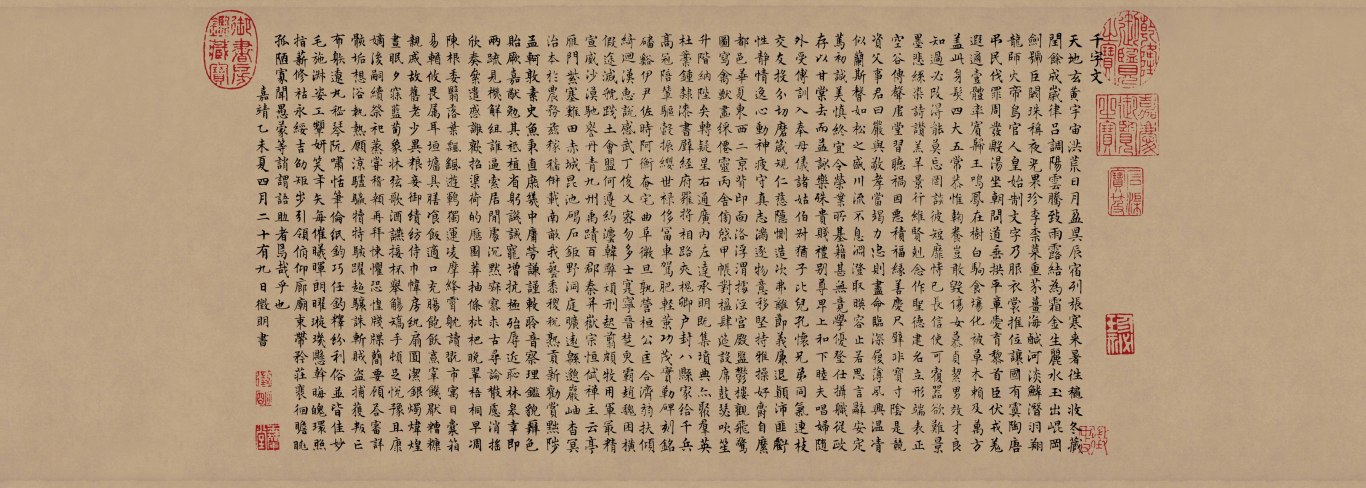 千字文
天地玄黃宇宙洪荒日月盈昃辰宿列張寒來暑往穐收冬藏
閏餘成歲律呂調陽雲騰致雨露結為霜金生麗水玉出崐岡
劍號巨闕珠稱夜光果珍李柰菜重芥薑海鹹河淡鱗潛羽翔
龍師火帝鳥官人皇始制文字乃服衣裳推位讓國有虞陶唐
弔民伐罪周發殷湯坐朝問道垂拱平章愛育黎首臣伏戎羌
遐邇壹體率賓歸王鳴鳳在樹白駒食場化被草木賴及萬方
蓋此身髮四大五常恭惟鞠養豈敢毀傷女慕貞絜男效才良
知過必改得能莫忘罔談彼短靡恃己長信使可覆器欲難量
墨悲絲染詩讚羔羊景行維賢剋念作聖德建名立形端表正
空谷傳聲虛堂習聽禍因惡積福緣善慶尺璧非寶寸陰是競
資父事君曰嚴與敬孝當竭力忠則盡命臨深履薄夙興溫凊
似蘭斯馨如松之盛川流不息淵澄取映容止若思言辭安定
篤初誠美慎終宜令榮業所基籍甚無竟學優登仕攝職從政
存以甘棠去而益詠樂殊貴賤禮別尊卑上和下睦夫唱婦隨
外受傅訓入奉母儀諸姑伯叔猶子比兒孔懷兄弟同氣連枝
交友投分切磨箴規仁慈隱惻造次弗離節義廉退顛沛匪虧
性靜情逸心動神疲守真志滿逐物意移堅持雅操好爵自縻
都邑華夏東西二京背邙面洛浮渭據涇宮殿盤鬱樓觀飛驚
圖寫禽獸畫綵仙靈丙舍傍啟甲帳對楹肆筵設席鼓瑟吹笙
升階納陛弁轉疑星右通廣內左達承明既集墳典亦聚群英
杜稿鍾隸漆書壁經府羅將相路俠槐卿戶封八縣家給千兵
高冠陪輦驅轂振纓世祿侈富車駕肥輕策功茂實勒碑刻銘
磻谿伊尹佐時阿衡奄宅曲阜微旦孰營桓公匡合濟弱扶傾
綺迴漢惠說感武丁俊乂密勿多士寔寧晉楚更霸趙魏困橫
假途滅虢踐土會盟何遵約法韓弊煩刑起翦頗牧用軍最精
宣威沙漠馳譽丹青九州禹蹟百郡秦并嶽宗恒岱禪主云亭
雁門紫塞雞田赤城昆池碣石鉅野洞庭曠遠緜邈巖岫杳冥
治本於農務茲稼穡俶載南畝我藝黍稷稅熟貢新勸賞黜陟
孟軻敦素史魚秉直庶幾中庸勞謙謹敕聆音察理鑑貌辨色
貽厥嘉猷勉其祗植省躬譏誡寵增抗極殆辱近恥林皋幸即
兩疏見機解組誰逼索居閒處沉默寂寥求古尋論散慮逍遙
欣奏累遣慼謝歡招渠荷的歷園莽抽條枇杷晚翠梧桐早凋
陳根委翳落葉飄颻遊鵾獨運凌摩絳霄耽讀翫市寓目囊箱
易輶攸畏屬耳垣牆具膳飡飯適口充腸飽飫烹宰饑厭糟糠
親戚故舊老少異糧妾御績紡侍巾帷房紈扇圓潔銀燭煒煌
晝眠夕寐藍筍象牀弦歌酒讌接杯舉觴矯手頓足悅豫且康
嫡後嗣續祭祀蒸嘗稽顙再拜悚懼恐惶牋牒簡要顧答審詳
骸垢想浴執熱願涼驢騾犢特駭躍超驤誅斬賊盜捕獲叛亡
布射遼丸嵇琴阮嘯恬筆倫紙鈞巧任釣釋紛利俗並皆佳妙
毛施淑姿工顰妍笑年矢每催曦暉朗曜璇璣懸斡晦魄環照
指薪修祜永綏吉劭矩步引領俯仰廊廟束帶矜莊徘徊瞻眺
孤陋寡聞愚蒙等誚謂語助者焉哉乎也
嘉靖乙未夏四月二十有九日徵明書
御書房鑑藏寶